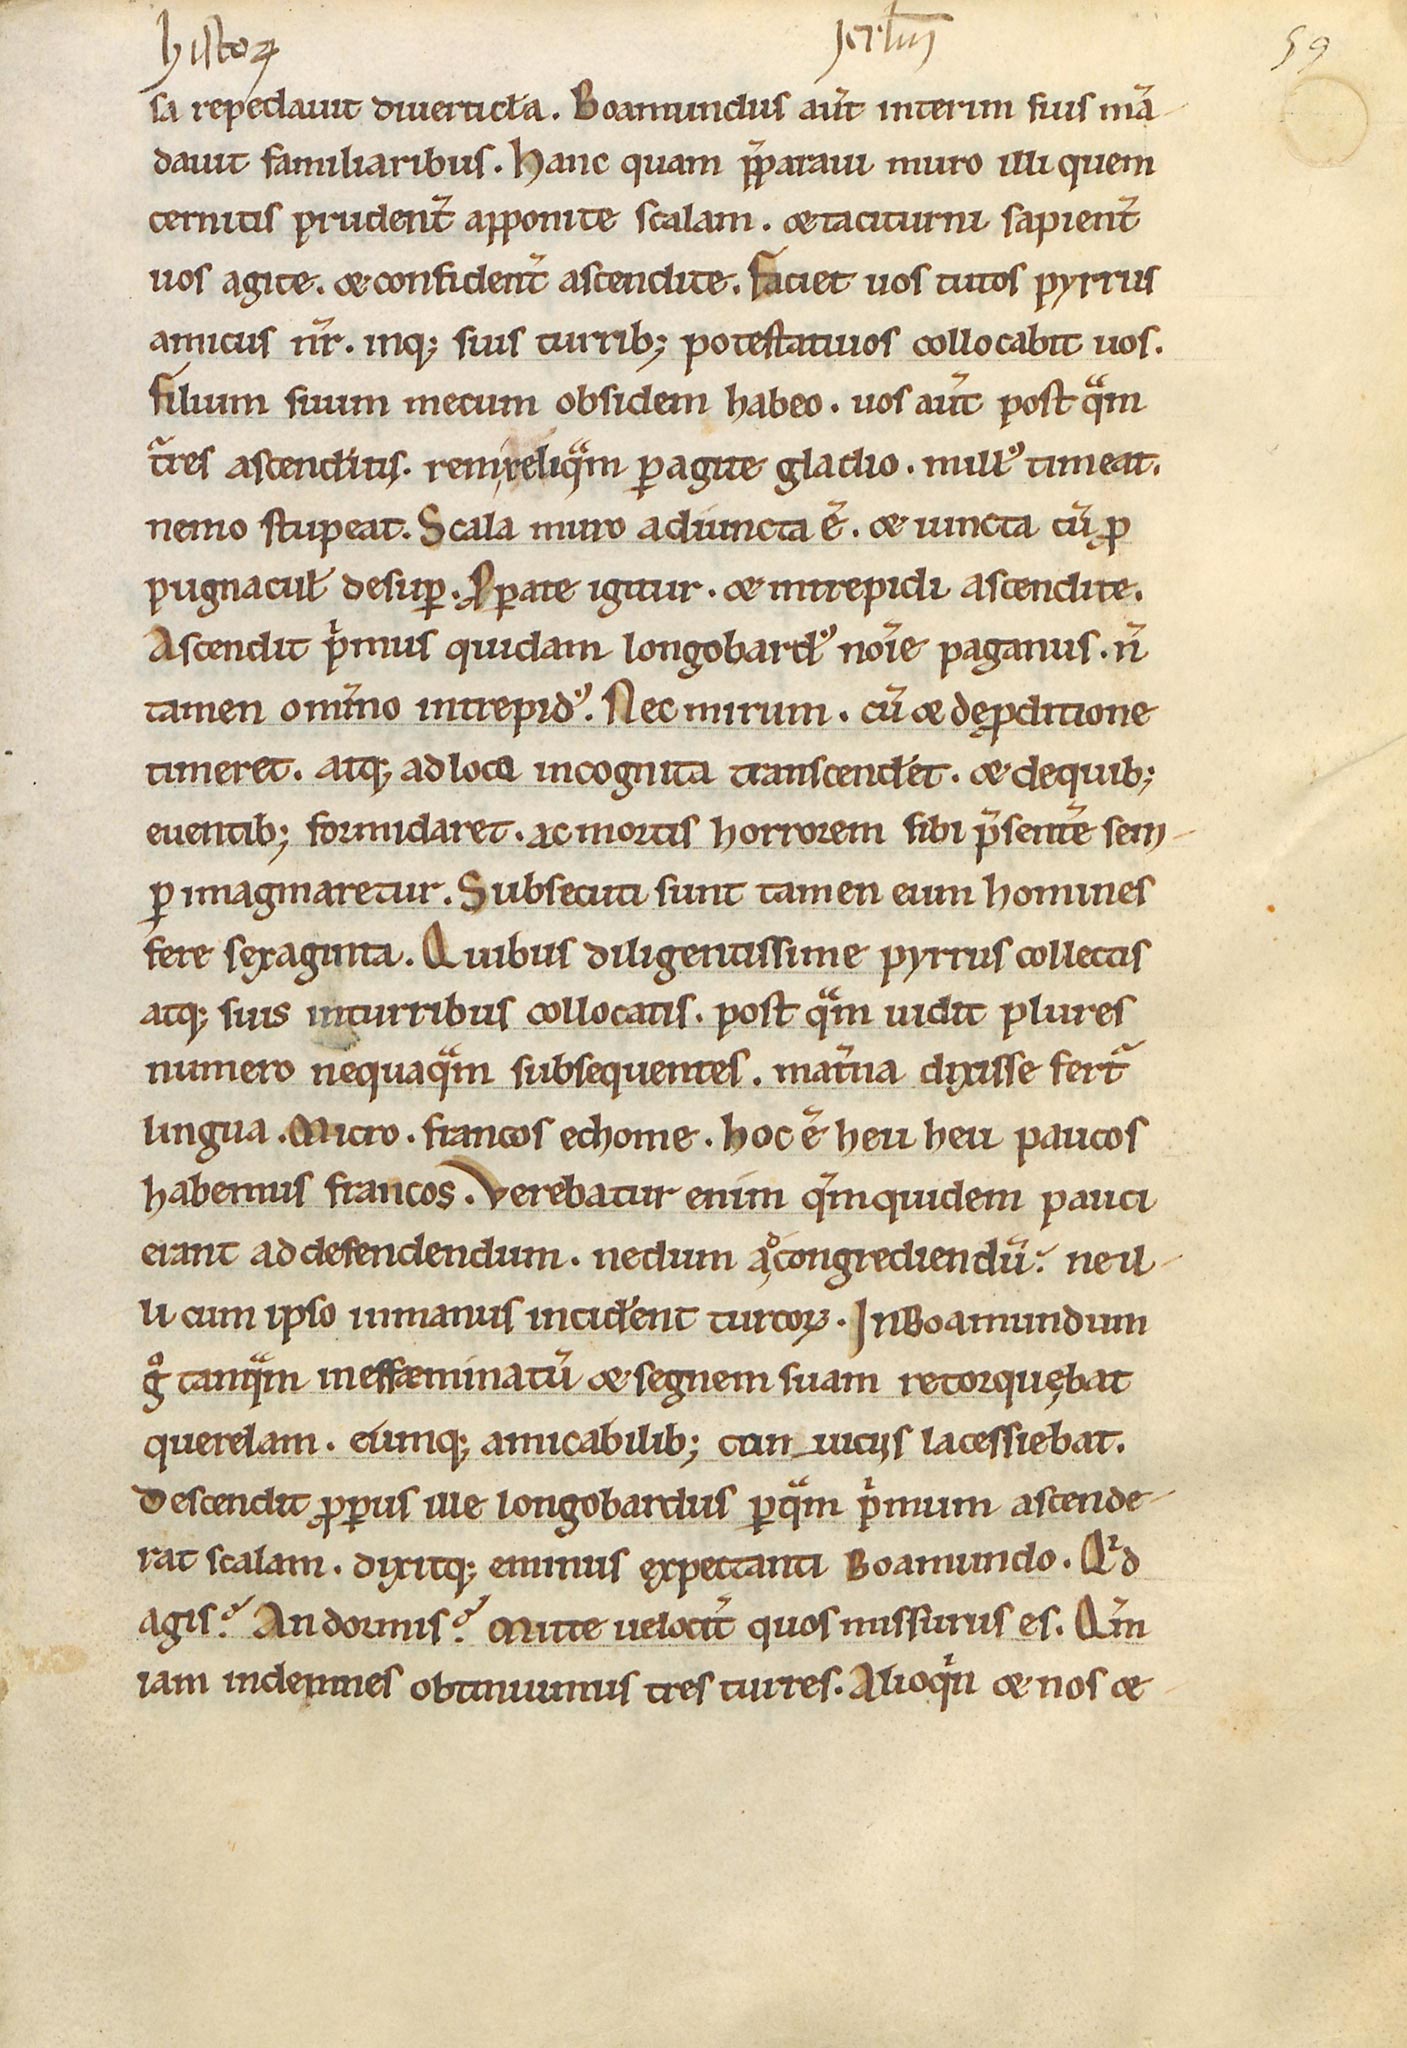 histoꝝ Jerl̅m 59
sa repedauit diuerticl̅a. Boamundus aut̅ interim suis mā
dauit familiaribus. Hanc quam p̅paraui muro illi quem
cernitis prudent̅ apponite scalam. & taciturni sapient̅
uos agite. & confident̅ ascendite. Faciet uos tutos pyrrus
amicus nr̅. inq; suis turrib; potestatiuos collocabit uos.
Filium suum mecum obsidem habeo. uos aut̅ post qͣm
tͣres ascenditis. rem reliqͣm ꝑagite gladio. null᷒ timeat.
nemo stupeat. Scala muro adiuncta ē. & iuncta cū ꝓ
pugnacul̅ desuꝑ. Ꝓꝑate igitur. & intrepidi ascendite.
Ascendit pͥmus quidam longobard᷒ noīe paganus. n̄
tamen om̅ino intrepid᷒. Nec mirum. cū & de ꝓditione
timeret. atq; ad loca incognita transcend̅et. & de quib;
euentib; formidaret. ac mortis horrorem sibi p̅sentē sem
ꝑ imaginaretur. Subsecuti sunt tamen eum homines
fere sexaginta. Quibus diligentissime pyrrus collectis
atq; suis in turribus collocatis. post qͣm uidit plures
numero nequaqͣm subsequentes. mat̅na dixisse fert᷑
lingua. Micro. francos echome. hoc ē heu heu paucos
habemus francos. Verebatur enim qm̅ quidem pauci
erant ad defendendum. nedum a̩ᵈ congrediendū. ne il
li cum ipso in manus incid̅ent turcoꝝ. In Boamundum
gͦ tanqͣm in effæminatū & segnem suam retorquębat
querelam. eumq; amicabilib; con uicijs lacessiebat.
Descendit ꝓpius ille longobardus ꝑ qͣm pͥmum ascende
rat scalam. dixitq; eminus expectanti Boamundo. Qͥd
agis? An dormis? Mitte uelocit̅ quos missurus es. Qm̅
iam indemnes obtinuimus tres turres. Alioqͥn & nos &